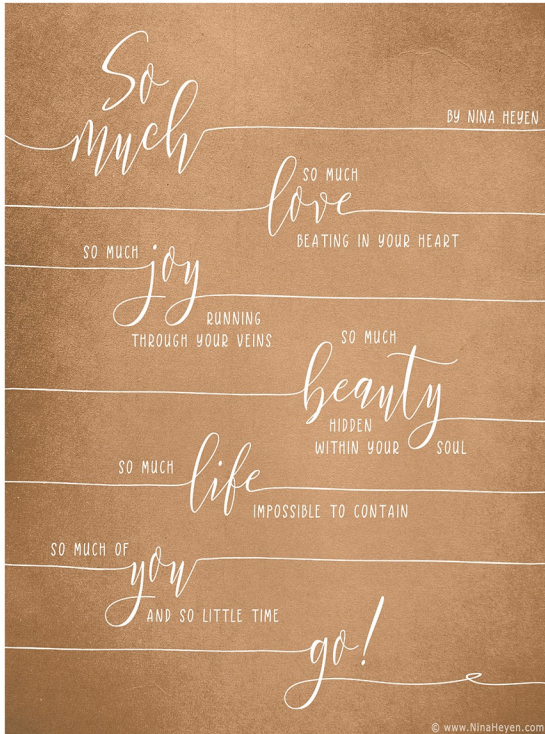 So
much
BY NINA HEYEN
SO MUCH
love
BEATING IN YOUR HEART
SO MUCH
joy
RUNNING
THROUGH YOUR VEINS
SO MUCH
beauty
HIDDEN
WITHIN YOUR SOUL
SO MUCH
life
IMPOSSIBLE TO CONTAIN
SO MUCH OF
you
AND SO LITTLE TIME
go!
© www.NinaHeyen.com